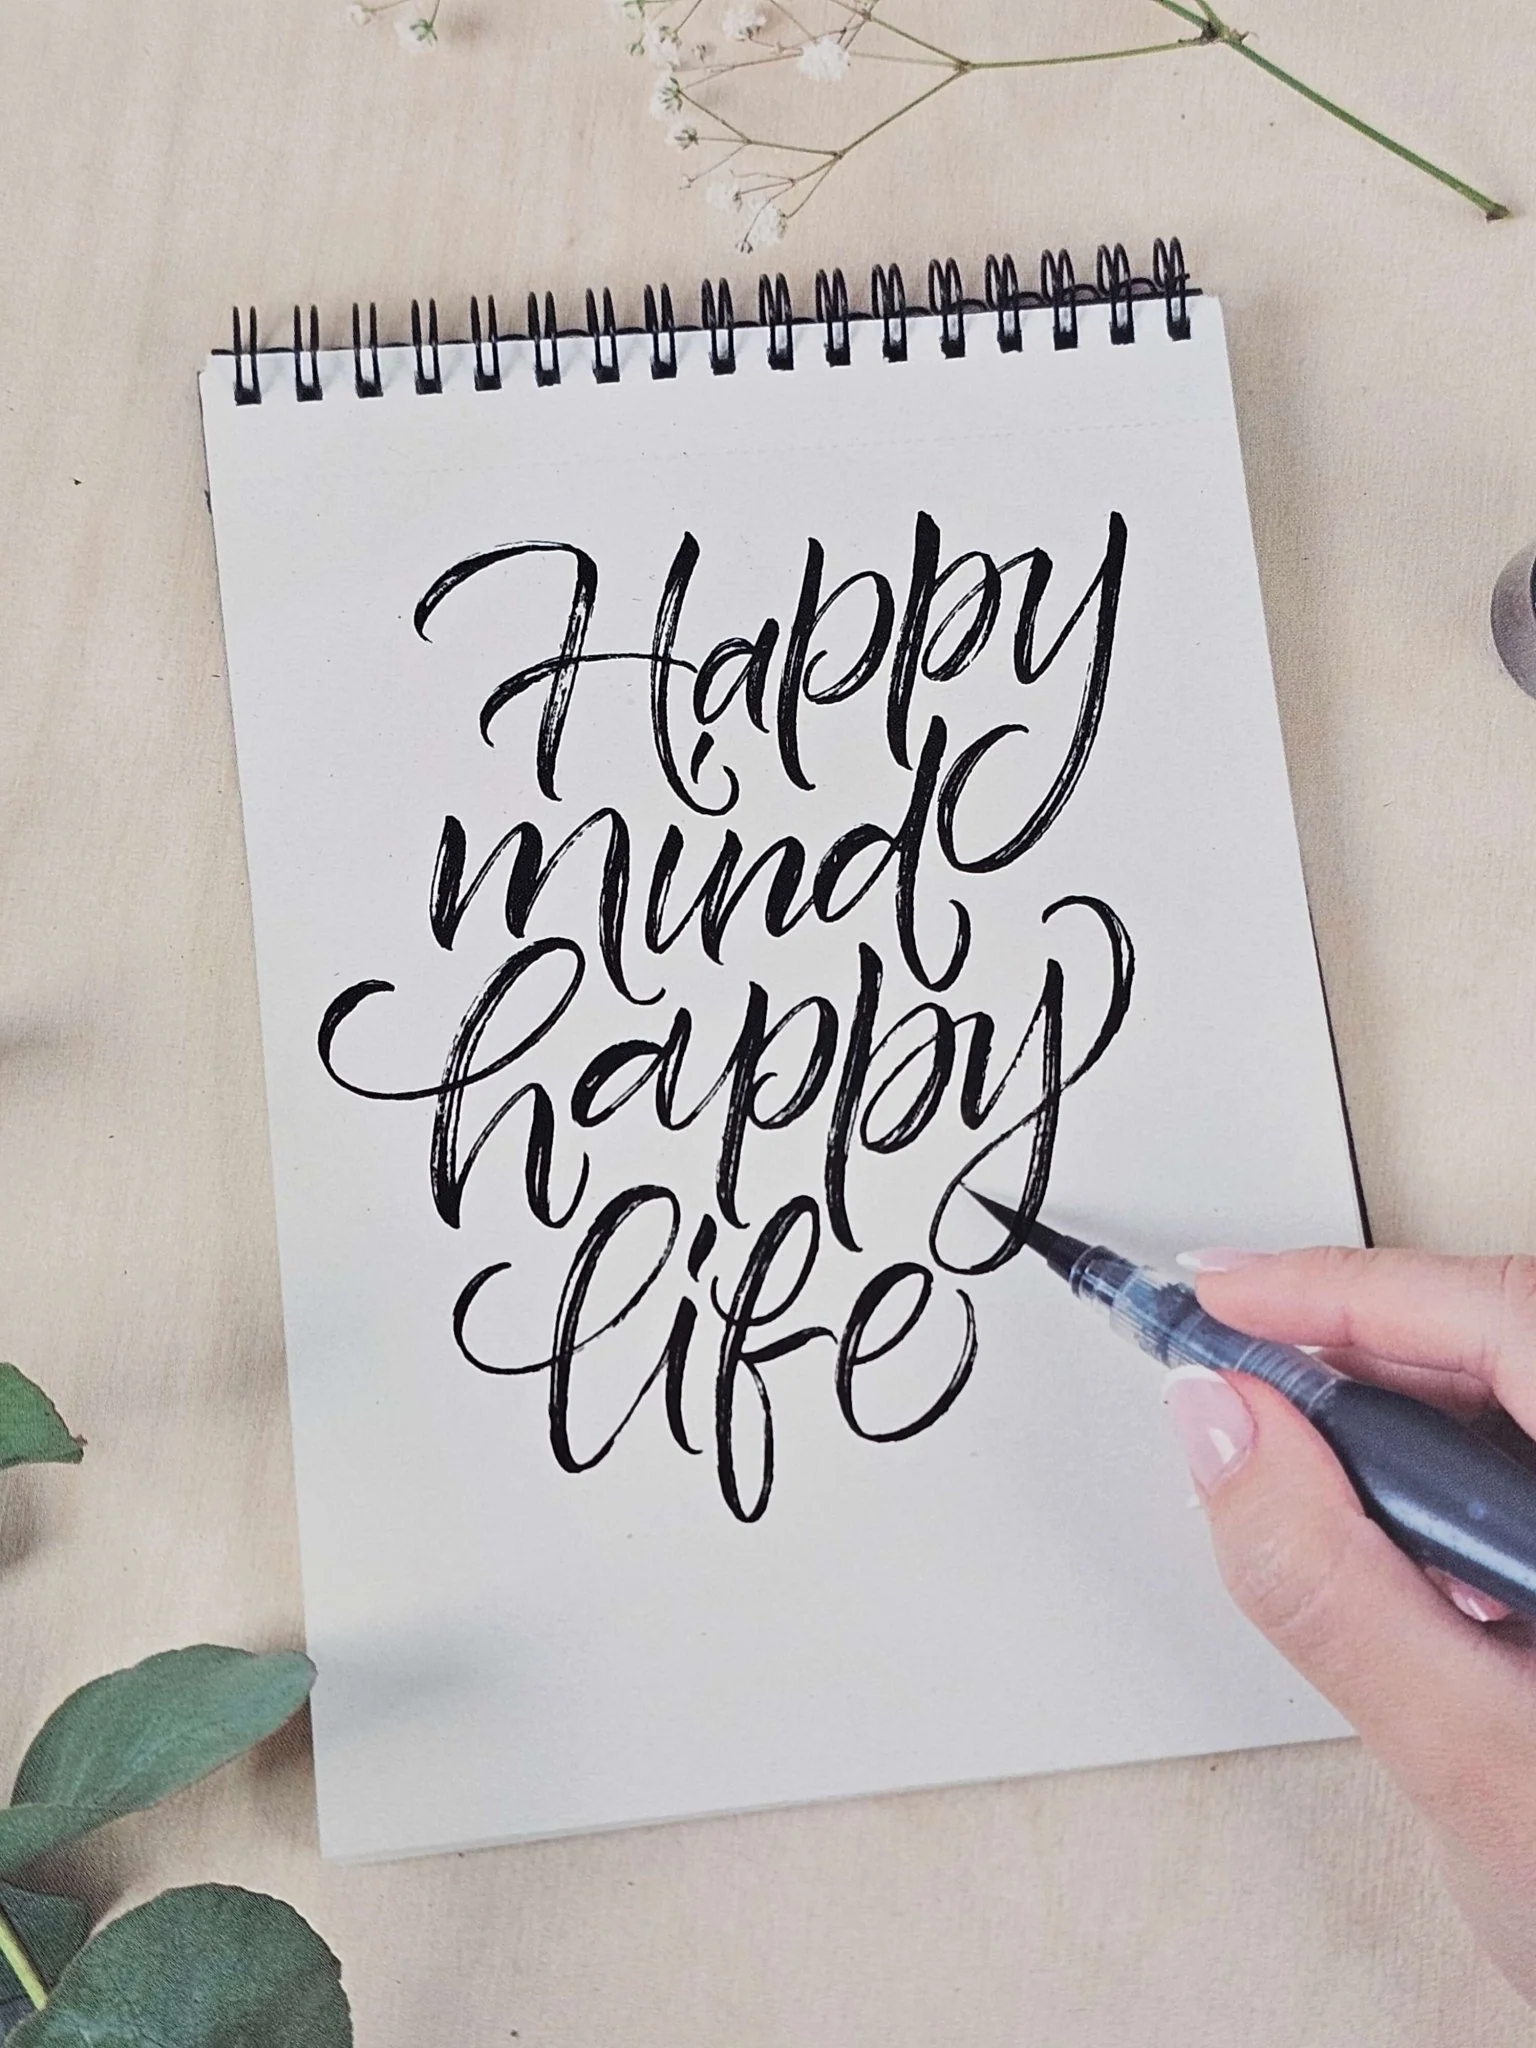 Happy
mind
happy
life